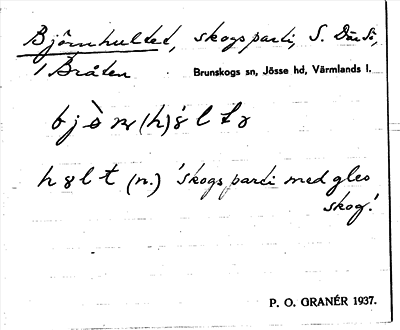 Björnhultet, skogsparti, S. Där Sö,
1 Bråten
Brunskogs sn, Jösse hd, Värmlands l.
hult (n.) 'skogsparti med gles
skog'.
P. O. GRANÉR 1937.